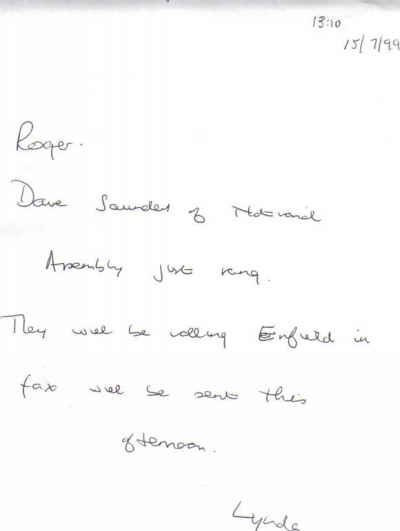 13:10
15/7/99
Roger.
Dave Saunders of National
Assembly just rang.
They will be calling Enfield in
fax will be sent this
afternoon.
Lynda